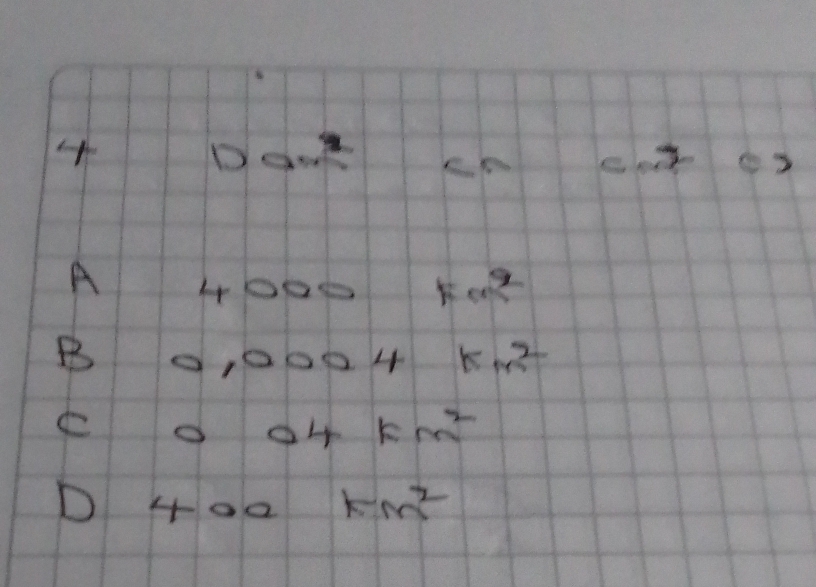 4 Dam²
A 4000 Km²
B 0,0004 Km²
C 0 04 Km²
D 400 Km²